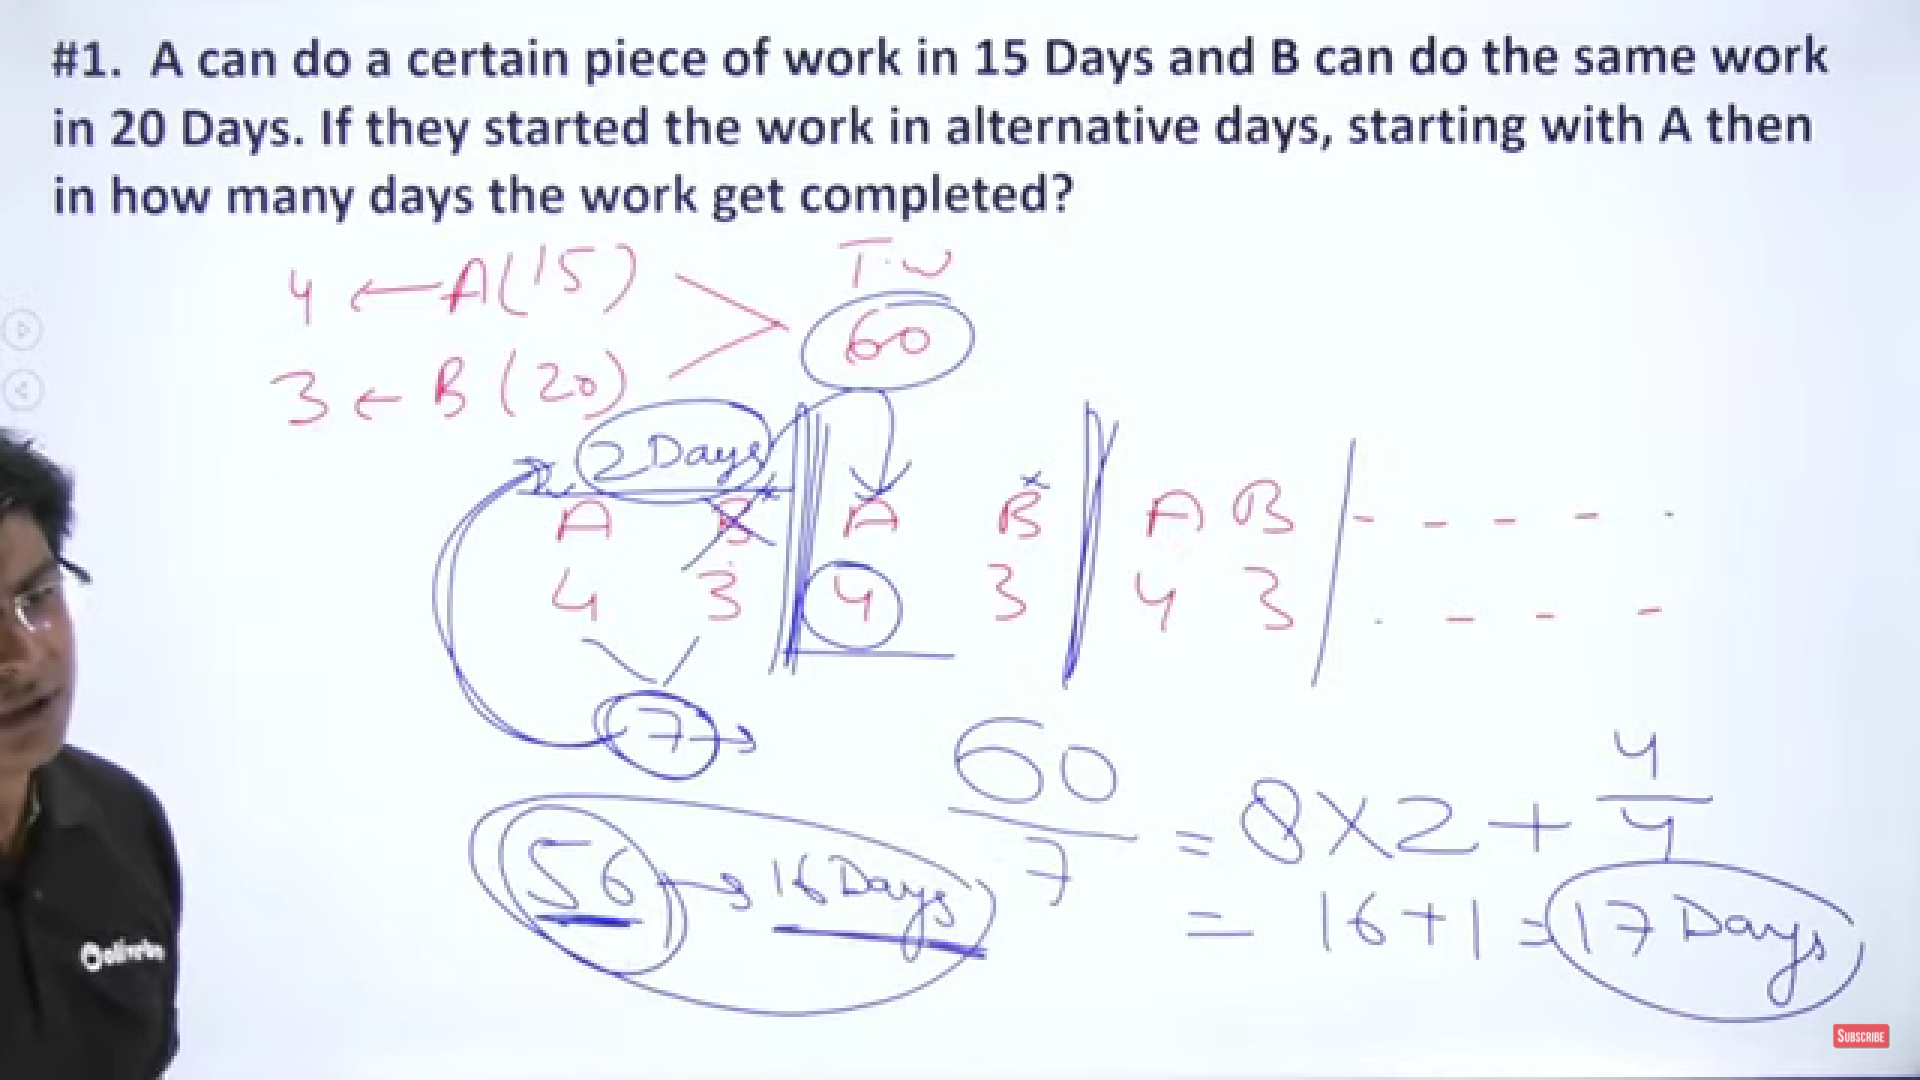 #1. A can do a certain piece of work in 15 Days and B can do the same work
in 20 Days. If they started the work in alternative days, starting with A then
in how many days the work get completed?
4 ← A(15)
T.W
60
3 ← B (20)
2 Days
A B A B A B - - - - -
4 3 4 3 4 3 - - - -
7 →
60/7 = 8 X 2 + 4/4
56 → 16 Days
= 16 + 1 = 17 Days
SUBSCRIBE